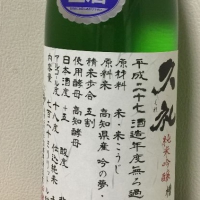 生酒
久礼
純米吟醸 槽
平成二十七酒造年度無ろ過
原材料 米・米こうじ
原料米 高知県産 吟の夢
精米歩合 五割
使用酵母 高知酵母
日本酒度 +五 酸度
アルコール度 十八度 仕込純米
内容量